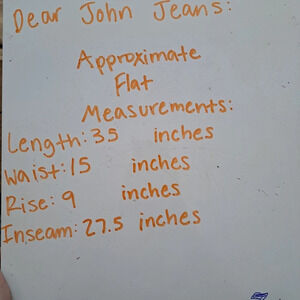 Dear John Jeans:
Approximate
Flat
Measurements:
Length: 35 inches
Waist: 15 inches
Rise: 9 inches
Inseam: 27.5 inches